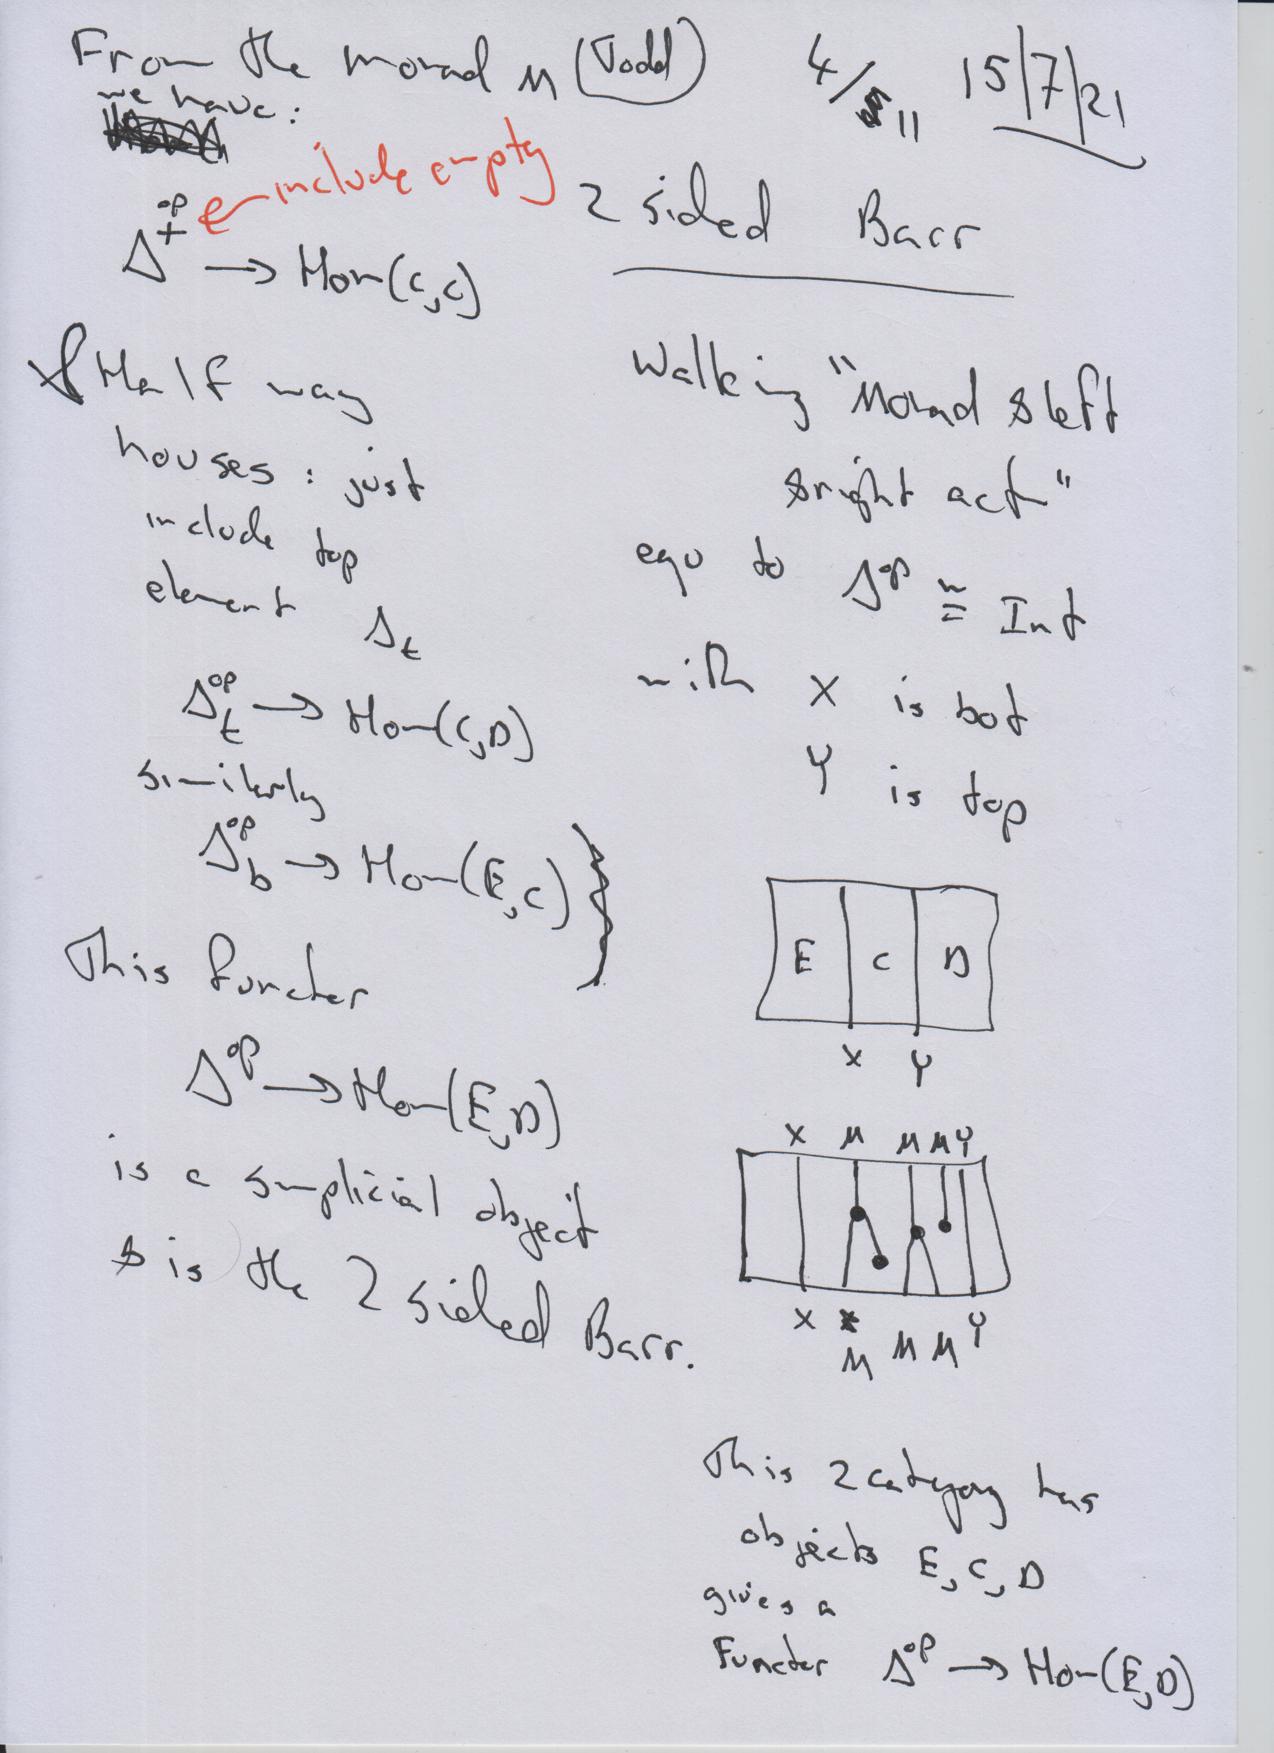 From the monad M (Todd)
4/11 15/7/21
we have:
include empty
2 sided Barr
Δ+^op → Hom(C,C)
& Half way
houses: just
include top
element Δt
Δt^op → Hom(C,D)
similarly
Δb^op → Hom(E,C)
This functer
Δ^op → Hom(E,D)
is a simplicial object
& is the 2 sided Barr.
Walking "Monad & left
& right act"
equ to Δ^op ≅ Int
with X is bot
Y is top
E C D
X Y
X M M M Y
X M M M Y
This 2category has
objects E, C, D
gives a
Functer Δ^op → Hom(E,D)